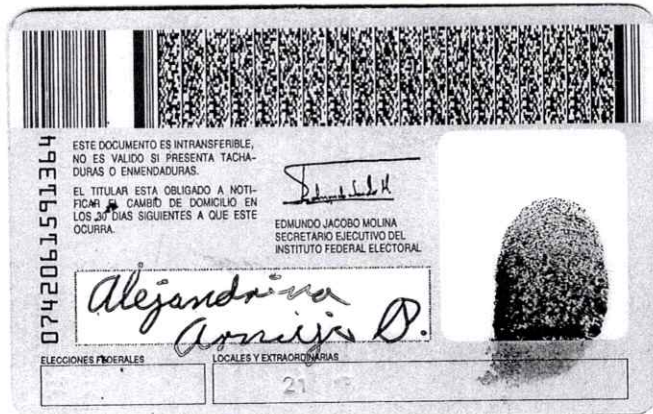 ESTE DOCUMENTO ES INTRANSFERIBLE,
NO ES VALIDO SI PRESENTA TACHA-
DURAS O ENMENDADURAS.
EL TITULAR ESTA OBLIGADO A NOTI-
FICAR EL CAMBIO DE DOMICILIO EN
LOS 30 DIAS SIGUIENTES A QUE ESTE
OCURRA.
0742061591364
EDMUNDO JACOBO MOLINA
SECRETARIO EJECUTIVO DEL
INSTITUTO FEDERAL ELECTORAL
Alejandrina
Armijo P.
ELECCIONES FEDERALES
LOCALES Y EXTRAORDINARIAS
21